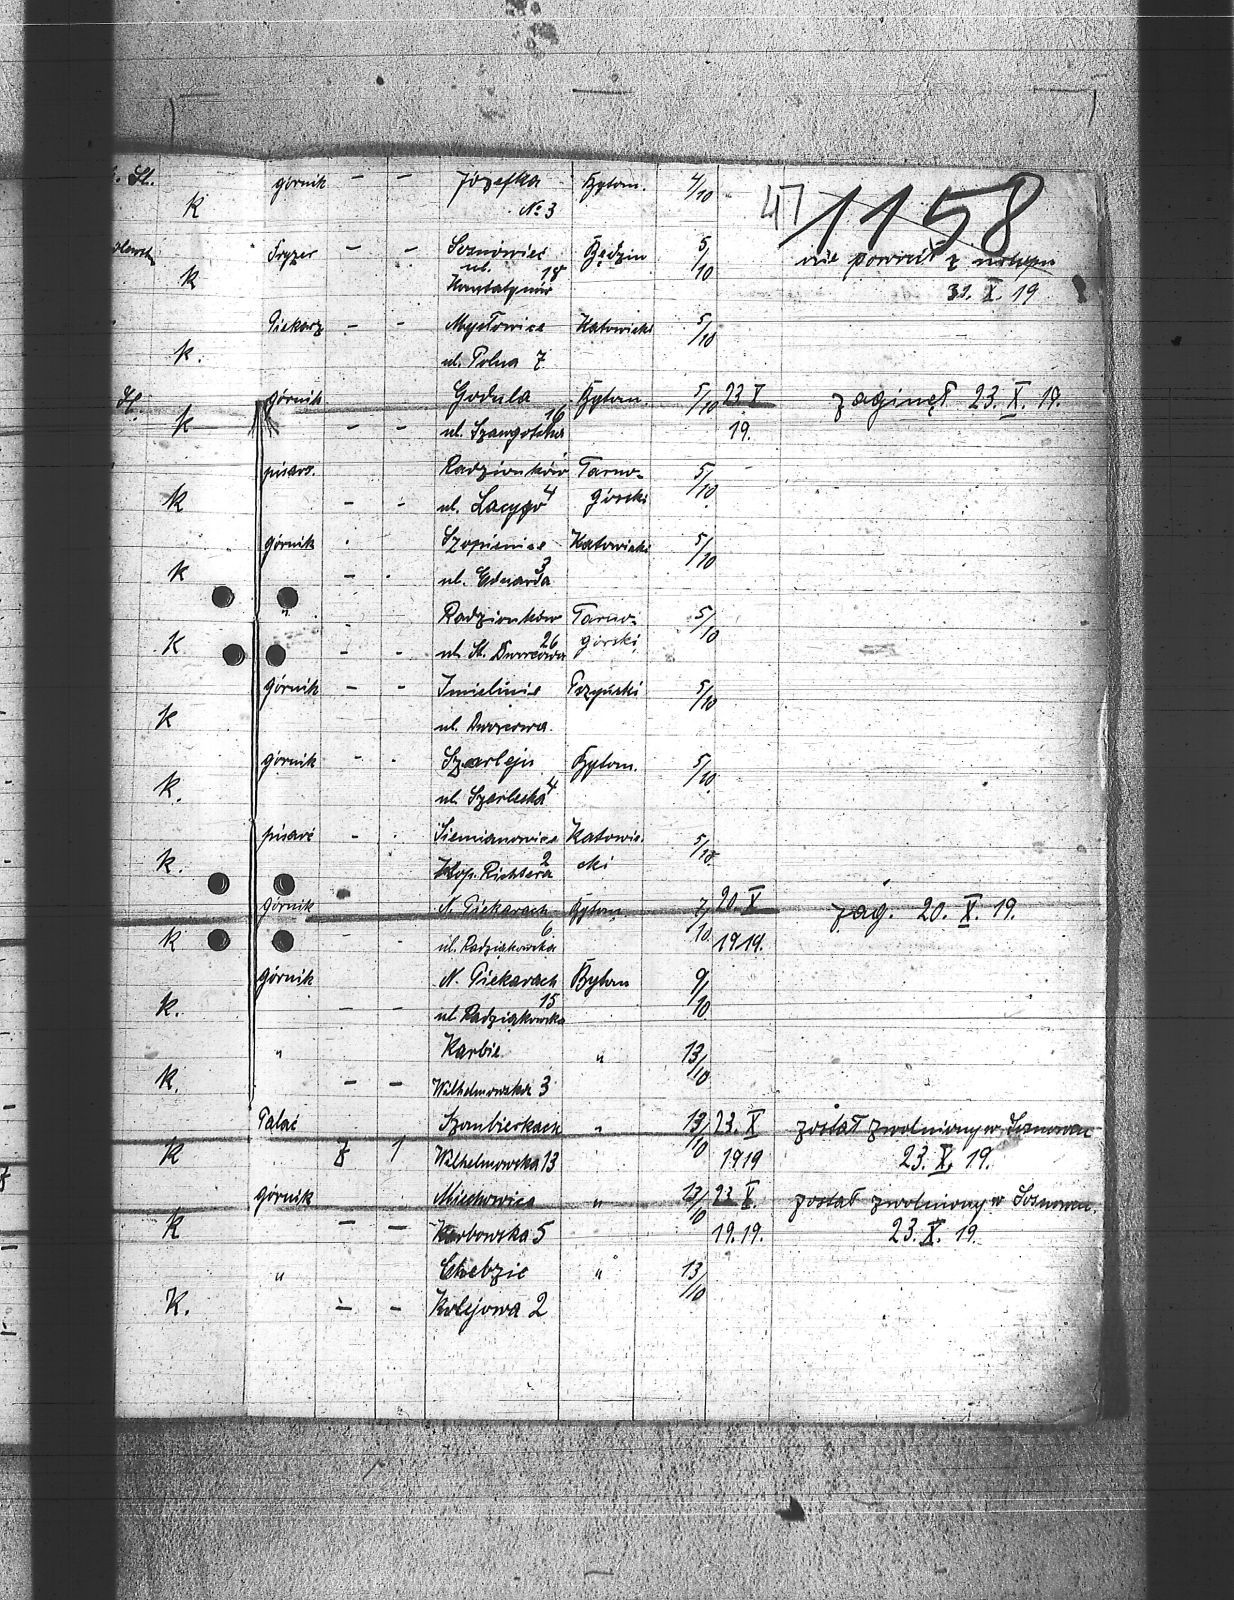 górnik - - Józefka Bytom. 4/10 47 1158
K No 3
Fryzer - - Sosnowiec Będzin 5/10 nie powrócił z urlopu
K ul. 15 31. X. 19
Piekarz - - Mysłowice Katowicki 5/10
K. ul. Polna 7
górnik Godula Bytom. 5/10 23 X zaginęł 23. X. 19.
K - - ul. 16 19.
pisarz. Radzionków Tarno- 5/10
K - - ul. 4 górski
górnik Szopienice Katowicki 5/10
K - - ul. Eduarda 3
" Radzionków Tarno- 5/10
K - - ul. St. Dworcowa 26 górski
górnik - - Imielinie Pszyński 5/10
K ul. Dworcowa
górnik - - Szarleju Bytom. 5/10
K. ul. Szarleska 4
pisarz - - Siemianowice Katowic- 5/10
K. Kop. Richtera 2 cki
górnik N. Piekarach Bytom 7/10 20 X zag. 20. X. 19.
K - - ul. 6 1919.
górnik N. Piekarach Bytom 9/10
K. - - ul. 15
" Karbie " 13/10
K. - - Wilhelmowska 3
Palac Szombierkach " 13/10 23. X został zwolniony w Sosnowcu
K 8 1 Wilhelmowska 13 1919 23. X. 19.
górnik Miechowice " 13/10 23 X. został zwolniony w Sosnowcu.
K - - Karbowska 5 19.19. 23. X. 19.
" Chebzie " 13/10
K. - - Kolejowa 2